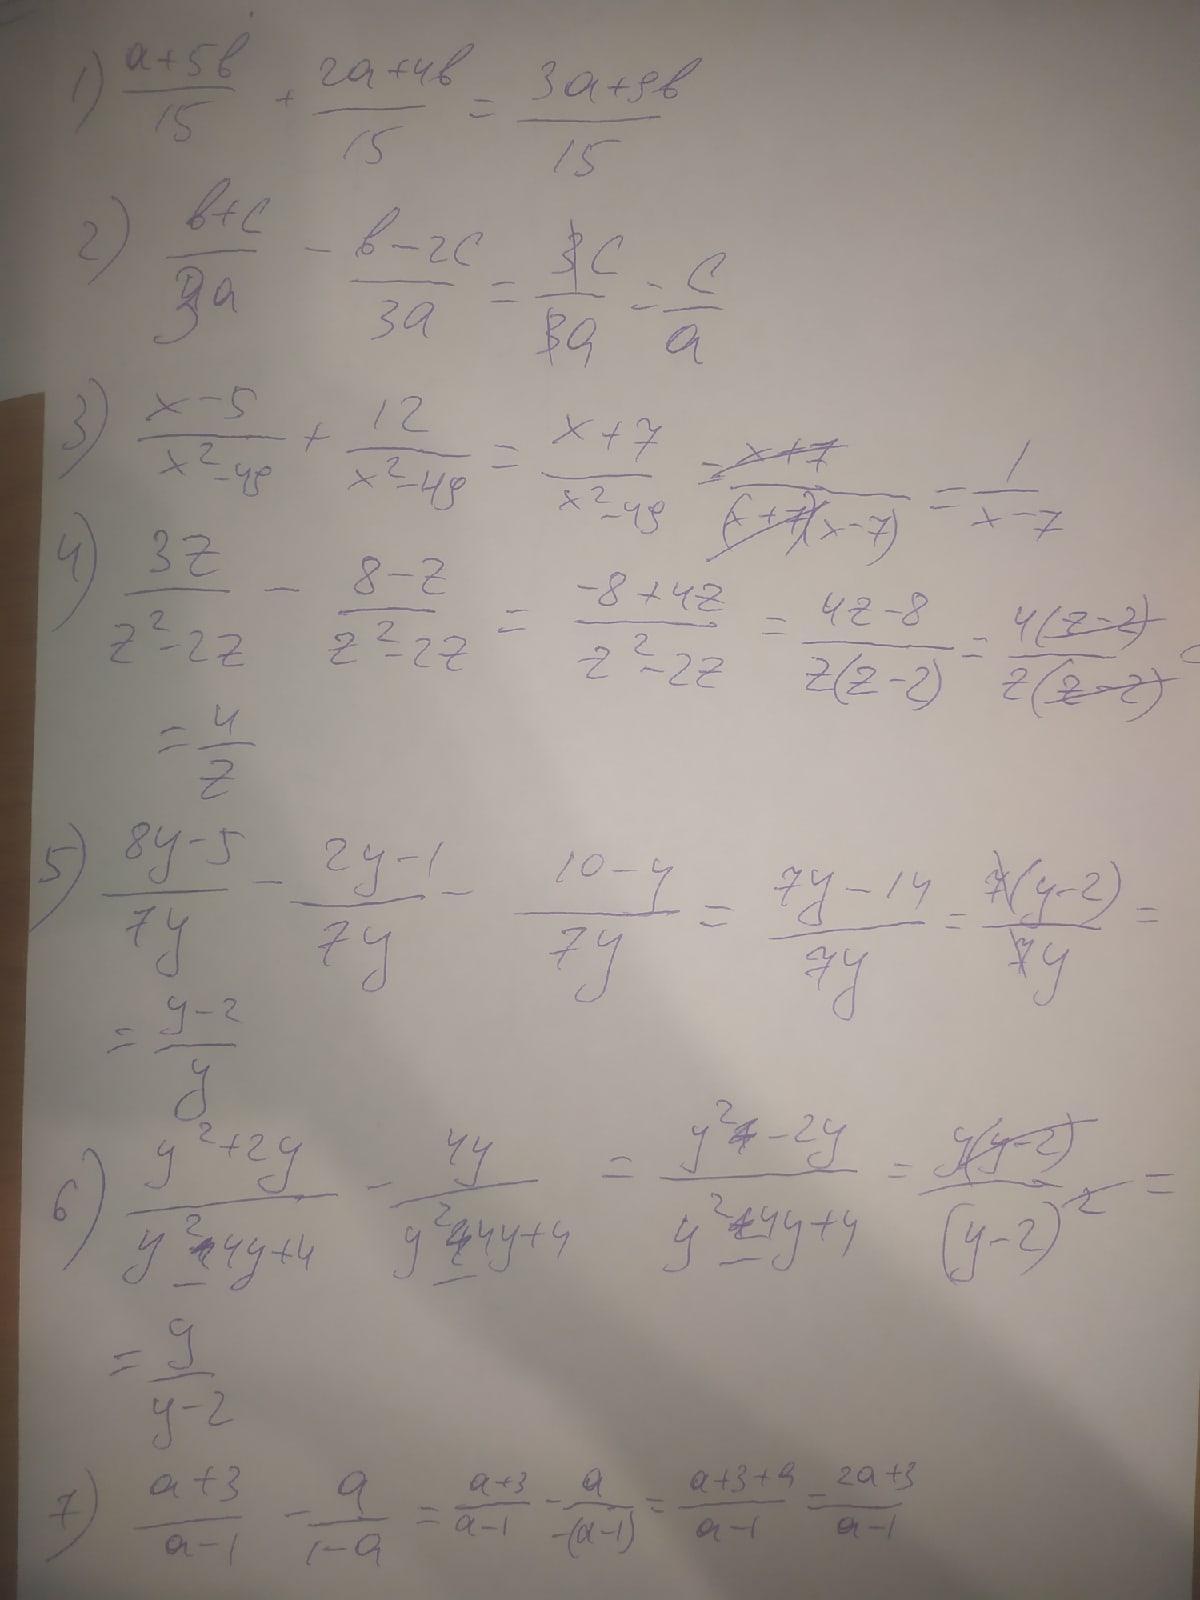 1) (a+5b)/15 + (2a+4b)/15 = (3a+9b)/15
2) (b+c)/3a - (b-2c)/3a = 3c/3a = c/a
3) (x-5)/(x²-49) + 12/(x²-49) = (x+7)/(x²-49) = (x+7)/((x+7)(x-7)) = 1/(x-7)
4) 3z/(z²-2z) - (8-z)/(z²-2z) = (-8+4z)/(z²-2z) = (4z-8)/(z(z-2)) = 4(z-2)/(z(z-2)) =
= 4/z
5) (8y-5)/7y - (2y-1)/7y - (10-y)/7y = (7y-14)/7y = 7(y-2)/7y =
= (y-2)/y
6) (y²+2y)/(y²-4y+4) - 4y/(y²-4y+4) = (y²-2y)/(y²-4y+4) = y(y-2)/(y-2)² =
= y/(y-2)
7) (a+3)/(a-1) - a/(1-a) = (a+3)/(a-1) - a/(-(a-1)) = (a+3+a)/(a-1) = (2a+3)/(a-1)